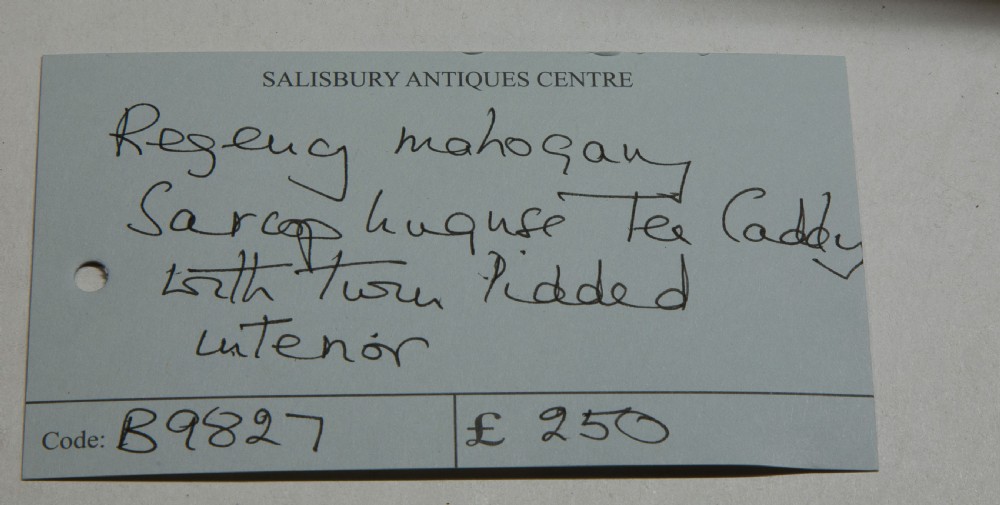 SALISBURY ANTIQUES CENTRE
Regency mahogany
Sarcophuguse Tea Caddy
with Twin lidded
interior
Code: B9827 £ 250